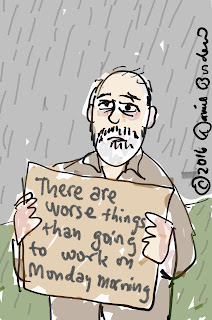 There are
worse things
than going
to work on
Monday morning
©2016